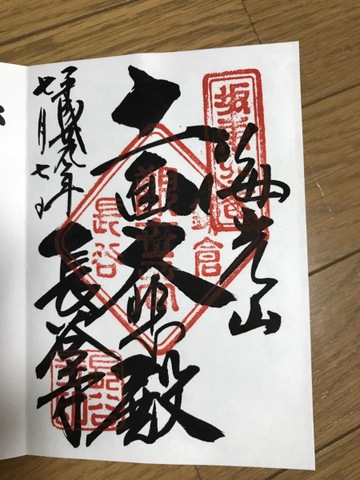 坂東
海光山
鎌倉
十一面大悲殿
観世音
長谷
長谷寺
平成廿九年
七月七日